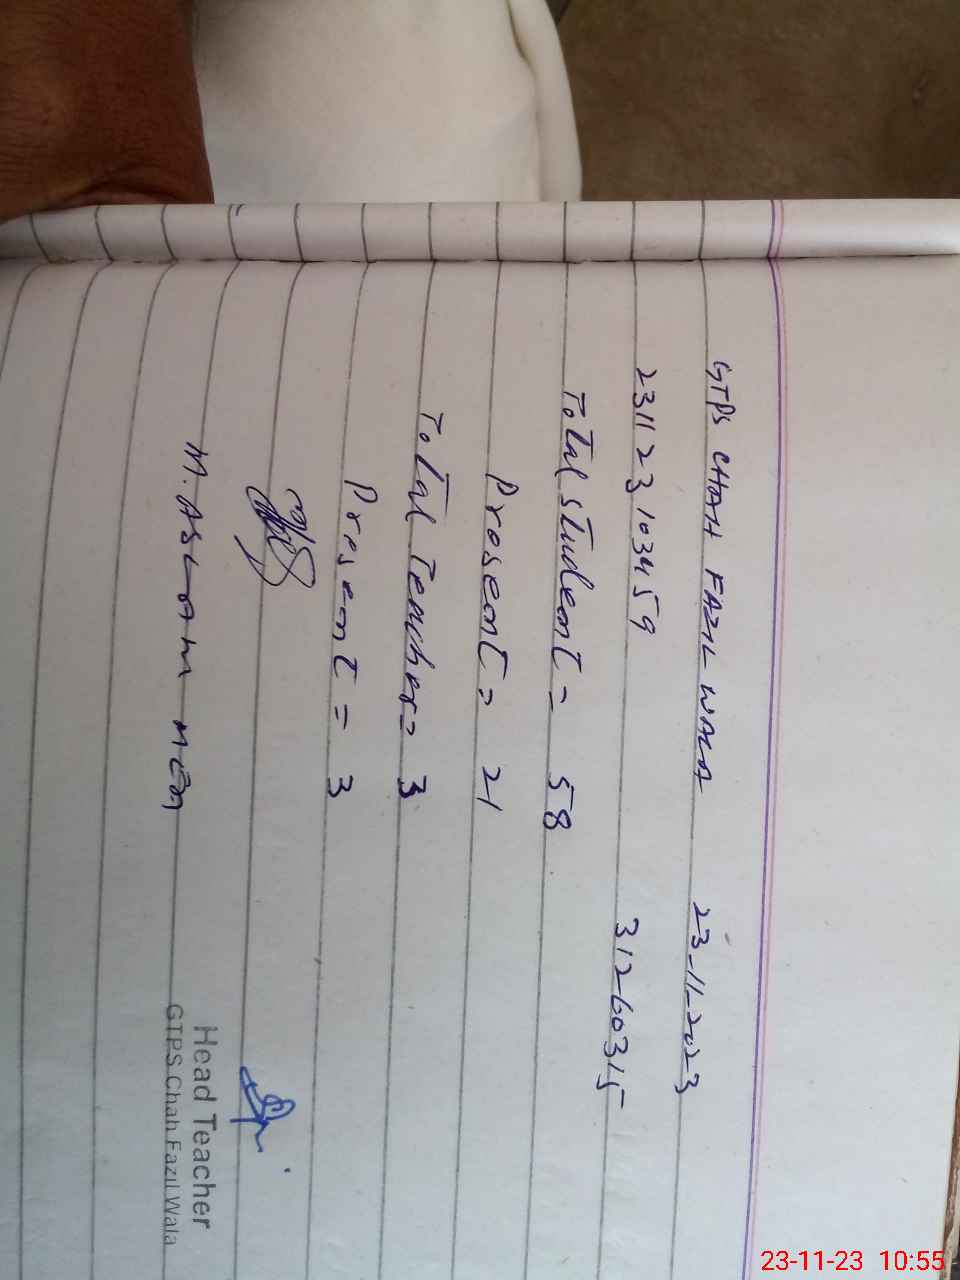 GTPS CHAH FAZIL WALA 23-11-2023
231123103459 31260315
Total student = 58
Present = 21
Total Teacher = 3
Present = 3
M. ASLAM
Head Teacher
GTPS Chah Fazil Wala
23-11-23 10:55